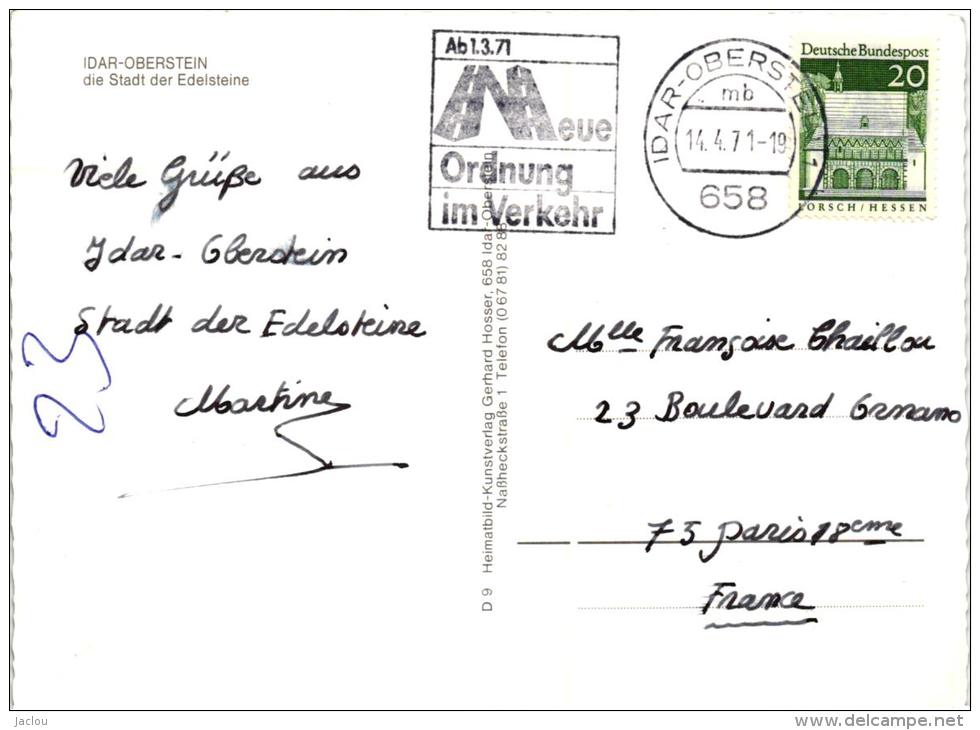 IDAR-OBERSTEIN
die Stadt der Edelsteine
Viele Grüße aus
Idar-Oberstein
Stadt der Edelsteine
Martine
23
Ab 1.3.71
Neue
Ordnung
im Verkehr
IDAR-OBERSTEIN
mb
14.4.71-19
658
Deutsche Bundespost
20
LORSCH/HESSEN
D 9 Heimatbild-Kunstverlag Gerhard Hosser, 658 Idar-Oberstein
Naßheckstraße 1 Telefon (0 67 81) 82 88
Mlle Françoise Chaillou
23 Boulevard Ornano
75 Paris 18eme
France
Jaclou
www.delcampe.net